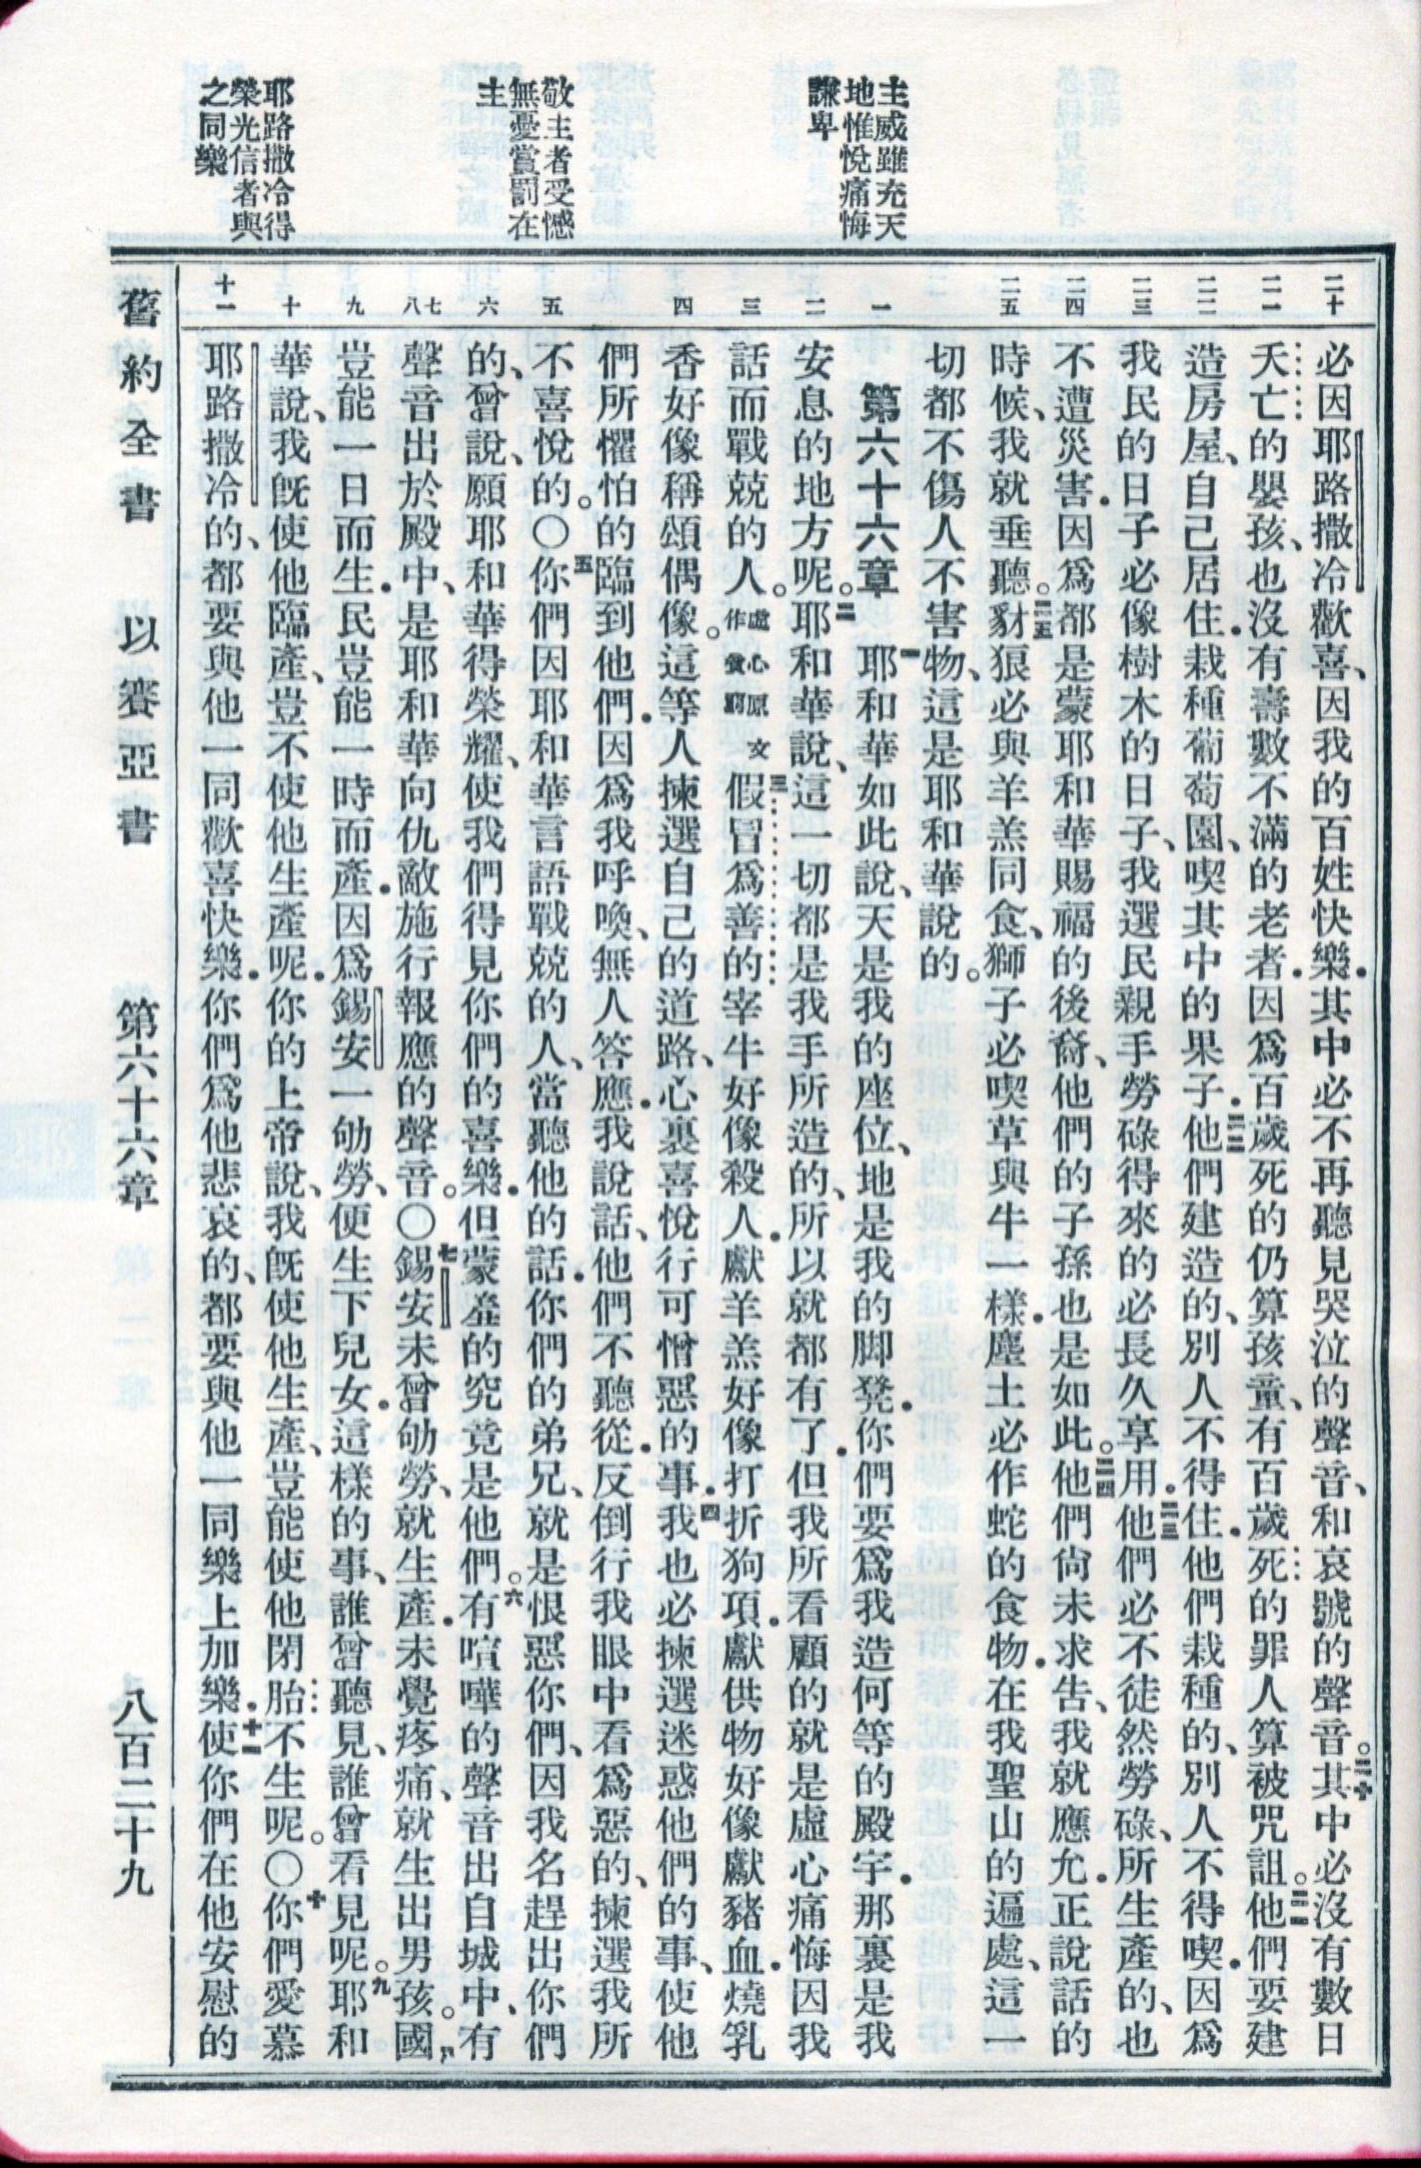 主威雖充天
地惟悅痛悔
謙卑
敬主者受憾
無憂賞罰在
主
耶路撒冷得
榮光信者與
之同樂
二十
二一
二二
二三
二四
二五
一
二
三
四
五
六
七
八
九
十
十一
必因耶路撒冷歡喜、因我的百姓快樂．其中必不再聽見哭泣的聲音、和哀號的聲音。二十其中必沒有數日
夭亡的嬰孩、也沒有壽數不滿的老者．因爲百歲死的仍算孩童、有百歲死的罪人算被咒詛。二一他們要建
造房屋、自己居住．栽種葡萄園、喫其中的果子．二二他們建造的、別人不得住．他們栽種的、別人不得喫．因爲
我民的日子必像樹木的日子、我選民親手勞碌得來的必長久享用．二三他們必不徒然勞碌、所生產的、也
不遭災害．因爲都是蒙耶和華賜福的後裔、他們的子孫也是如此。二四他們尙未求告、我就應允．正說話的
時候、我就垂聽。二五豺狼必與羊羔同食、獅子必喫草與牛一樣．塵土必作蛇的食物．在我聖山的遍處、這一
切都不傷人不害物、這是耶和華說的。
第六十六章 一耶和華如此說、天是我的座位、地是我的脚凳．你們要爲我造何等的殿宇．那裏是我
安息的地方呢。二耶和華說、這一切都是我手所造的、所以就都有了．但我所看顧的就是虛心痛悔因我
話而戰兢的人。虛心原文作貧窮 三假冒爲善的宰牛好像殺人．獻羊羔好像打折狗項．獻供物好像獻豬血．燒乳
香好像稱頌偶像。這等人揀選自己的道路、心裏喜悅行可憎惡的事．四我也必揀選迷惑他們的事、使他
們所懼怕的臨到他們．因爲我呼喚、無人答應．我說話、他們不聽從．反倒行我眼中看爲惡的、揀選我所
不喜悅的。〇五你們因耶和華言語戰兢的人、當聽他的話．你們的弟兄、就是恨惡你們、因我名趕出你們
的、曾說、願耶和華得榮耀、使我們得見你們的喜樂．但蒙羞的究竟是他們。六有喧嘩的聲音出自城中、有
聲音出於殿中、是耶和華向仇敵施行報應的聲音。〇七錫安未曾劬勞、就生產．未覺疼痛、就生出男孩。八國
豈能一日而生．民豈能一時而產．因爲錫安一劬勞、便生下兒女．這樣的事、誰曾聽見、誰曾看見呢。九耶和
華說、我旣使他臨產、豈不使他生產呢．你的上帝說、我旣使他生產、豈能使他閉胎不生呢。〇十你們愛慕
耶路撒冷的、都要與他一同歡喜快樂．你們爲他悲哀的、都要與他一同樂上加樂．十一使你們在他安慰的
舊約全書 以賽亞書 第六十六章 八百二十九